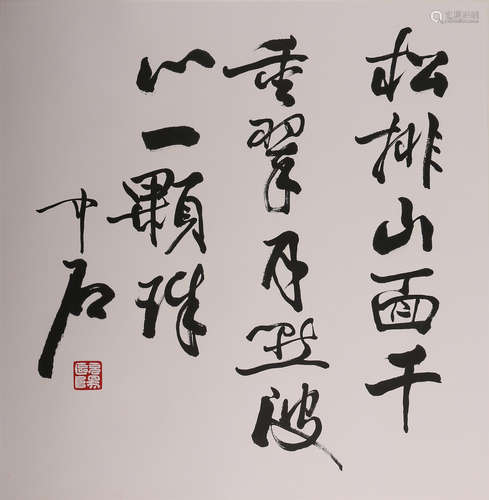 松排山面千
重翠月點波
心一顆珠
中石